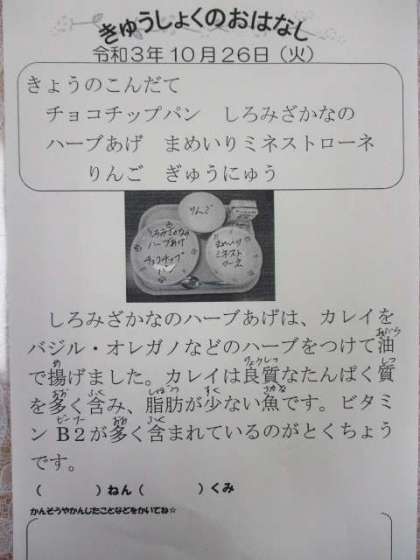 きゅうしょくのおはなし
令和3年10月26日（火）
きょうのこんだて
チョコチップパン　しろみざかなの
ハーブあげ　まめいりミネストローネ
りんご　ぎゅうにゅう
りんご
しろみざかなの
ハーブあげ
チョコチップ
パン
まめいり
ミネスト
ローネ
しろみざかなのハーブあげは、カレイを
バジル・オレガノなどのハーブをつけて油
で揚げました。カレイは良質なたんぱく質
を多く含み、脂肪が少ない魚です。ビタミ
ンB2が多く含まれているのがとくちょう
です。
（　　　）ねん（　　　）くみ
かんそうやかんしたことなどをかいてね☆